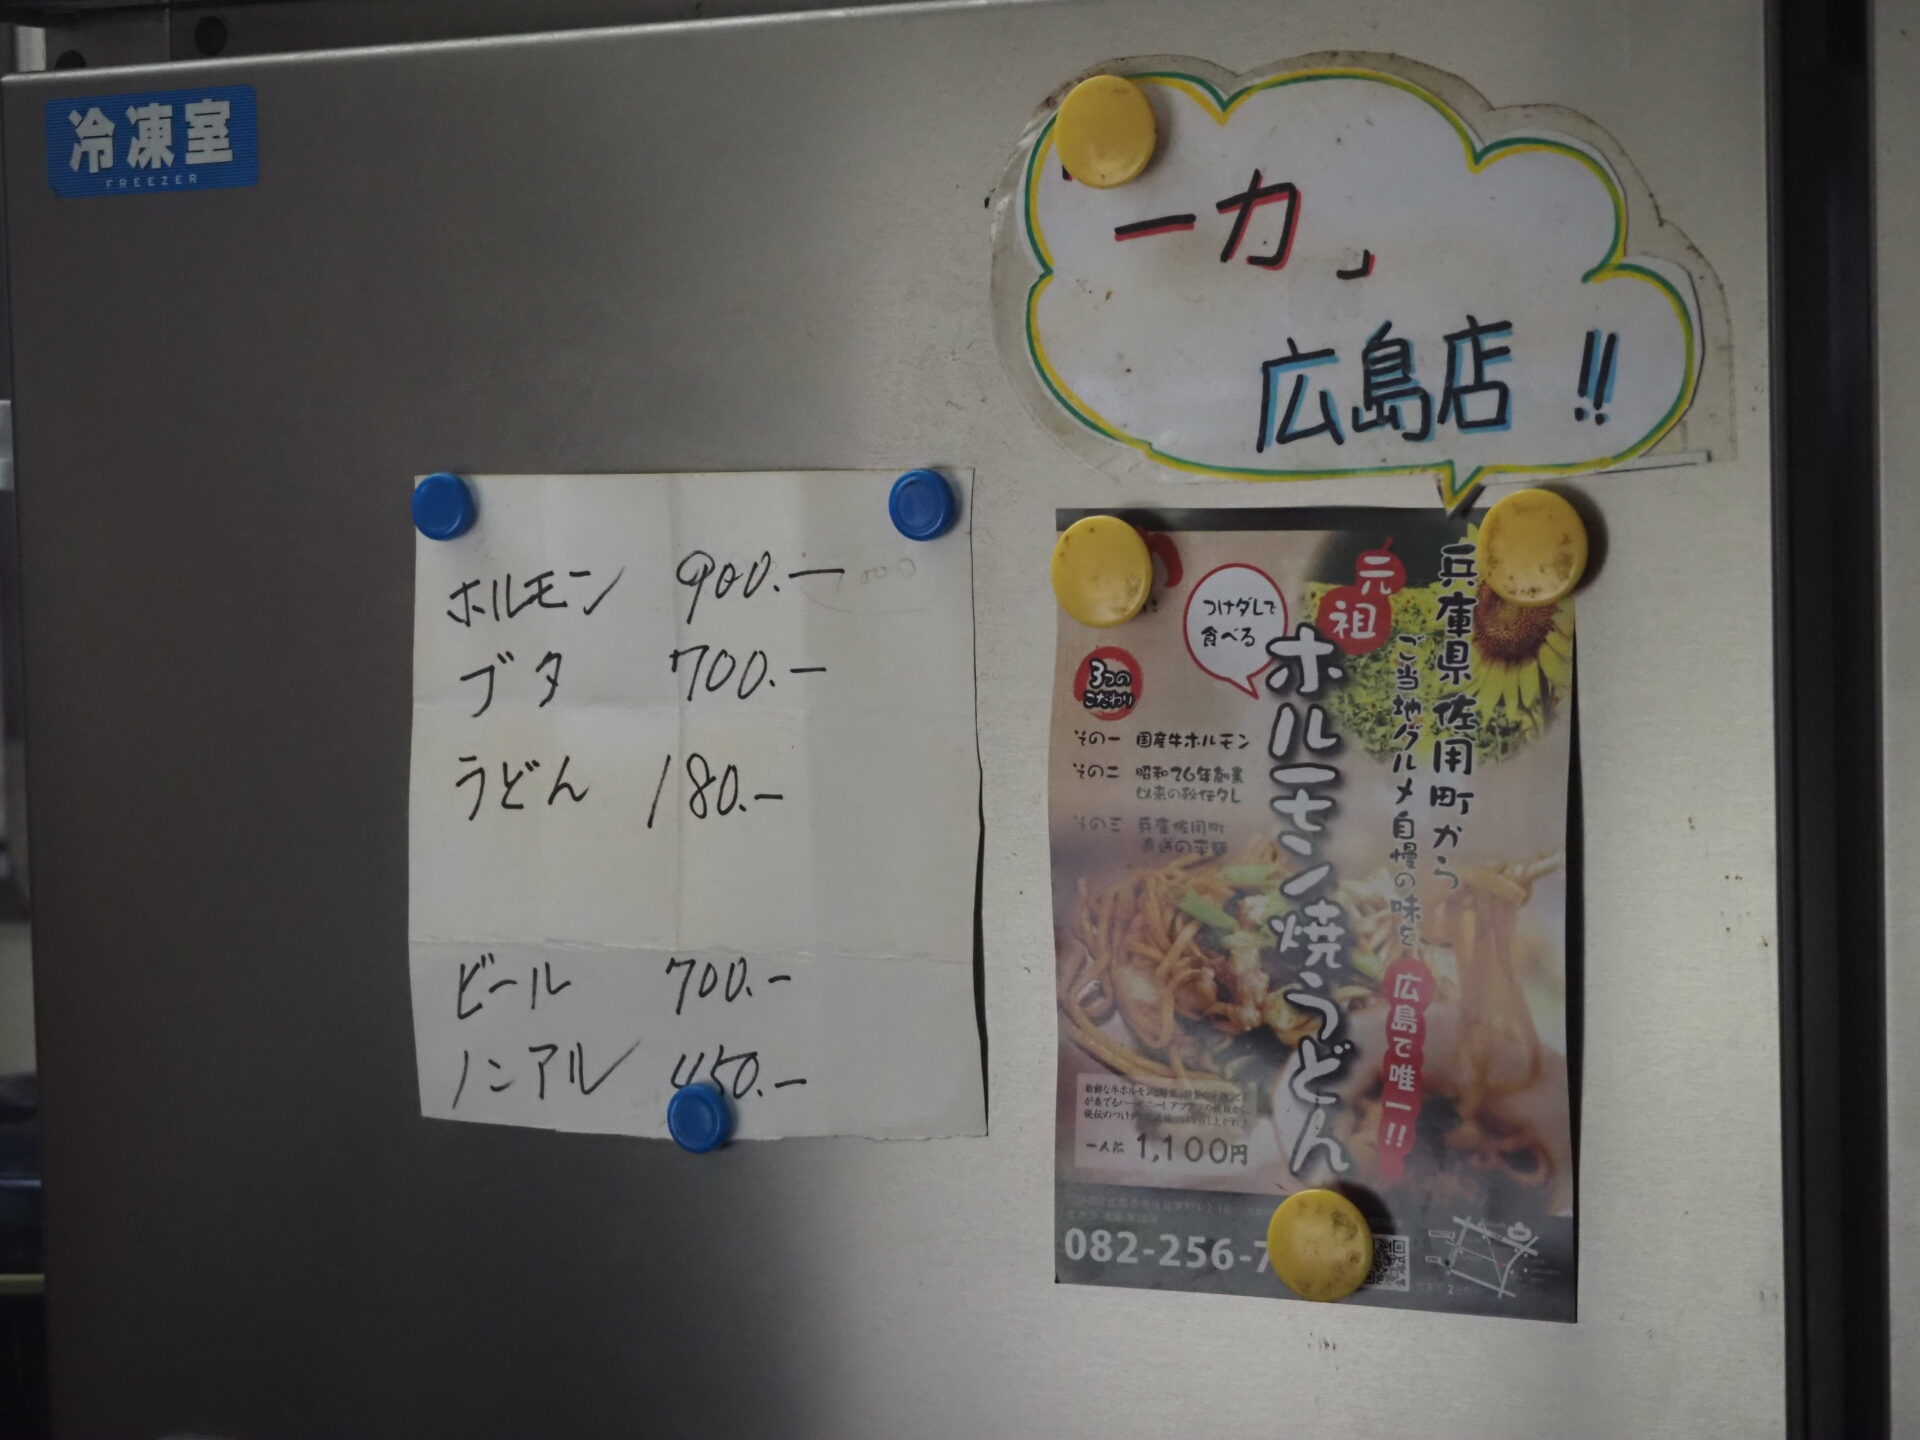 冷凍室
FREEZER
「一力」
広島店!!
ホルモン 900.-
ブタ 700.-
うどん 180.-
ビール 700.-
ノンアル 450.-
兵庫県佐用町から
ご当地グルメ自慢の味を
広島で唯一!!
元祖
ホルモン焼うどん
つけダレで
食べる
3つの
こだわり
その一 国産牛ホルモン
その二 昭和26年創業
以来の秘伝タレ
その三 兵庫佐用町
直送の平麺
一人前 1,100円
082-256-7